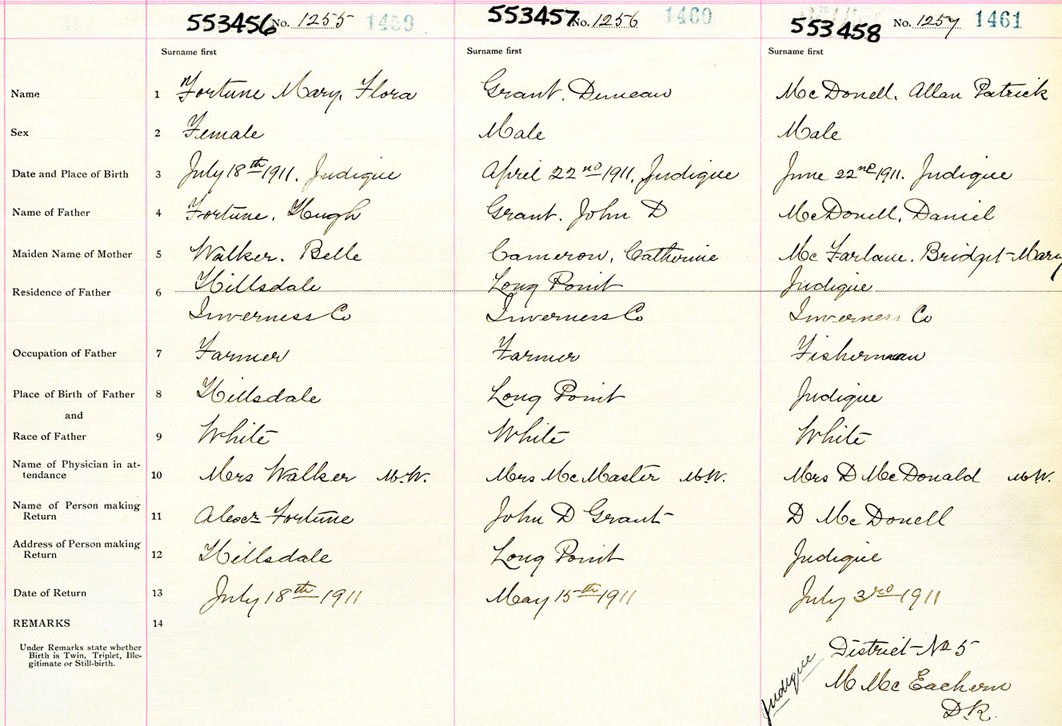 553456 No. 1255 1459
553457 No. 1256 1460
553458 No. 1257 1461
Surname first Surname first Surname first
Name 1 Fortune Mary, Flora Grant. Duncan McDonell. Allan Patrick
Sex 2 Female Male Male
Date and Place of Birth 3 July 18th 1911. Judique April 22nd 1911, Judique June 22nd 1911. Judique
Name of Father 4 Fortune, Hugh Grant. John D McDonell, Daniel
Maiden Name of Mother 5 Walker. Belle Cameron, Catherine McFarlane. Bridget-Mary
Residence of Father 6 Hillsdale Long Point Judique
Inverness Co Inverness Co Inverness Co
Occupation of Father 7 Farmer Farmer Fisherman
Place of Birth of Father 8 Hillsdale Long Point Judique
and
Race of Father 9 White White White
Name of Physician in at-
tendance 10 Mrs Walker M.W. Mrs McMaster M.W. Mrs D McDonald M.W.
Name of Person making
Return 11 Alexr Fortune John D Grant D McDonell
Address of Person making
Return 12 Hillsdale Long Point Judique
Date of Return 13 July 18th 1911 May 15th 1911 July 3rd 1911
REMARKS 14
Under Remarks state whether
Birth is Twin, Triplet, Ille-
gitimate or Still-birth.
Judique
District No 5
M McEachern
D.R.